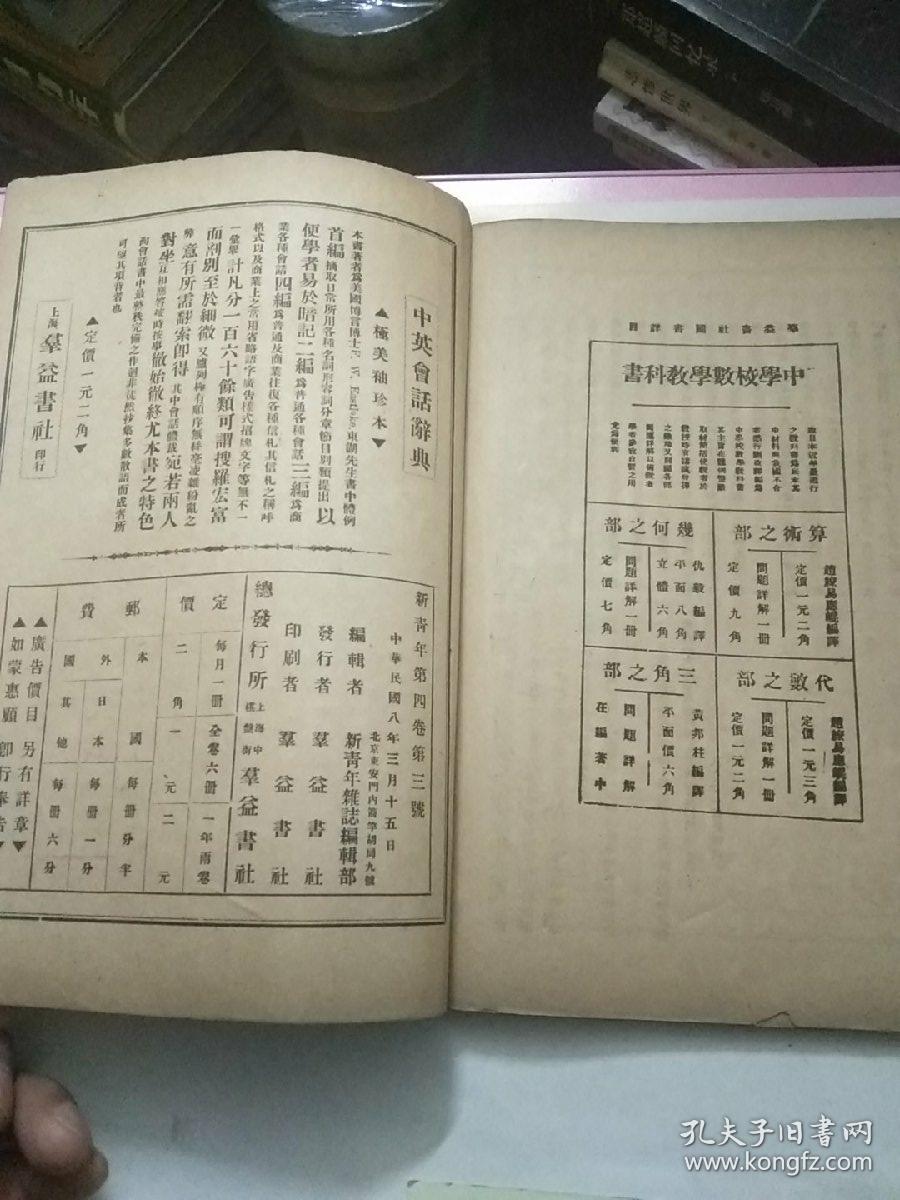 中英會話辭典
▲極美袖珍本▼
本書著者爲美國博言博士F. W. Eastlake東湖先生書中體例
首編摘取日常所用各種名詞形容詞分章節目別類提出以
便學者易於暗記二編爲普通各種會話三編爲商
業各種會話四編爲普通及商業往復各種信札其信札之稱呼
格式以及商業上之常用省略語字廣告種式招牌文字等無不一
一彙舉計凡分一百六十餘類可謂搜羅宏富
而剖別至於細微又臚列極有順序無絲毫凌雜紛亂之
弊意有所需翻索卽得其中會話體裁宛若兩人
對坐互相應答或時按事徹始徹終尤本書之特色
而會話書中最整秩完備之作迥非徒然抄摘多數散話而成者所
可望其項背者也
▲定價一元二角▼
上海羣益書社印行
新青年第四卷第三號
中華民國八年三月十五日
北京東安門內箭竿胡同九號
編輯者 新青年雜誌編輯部
發行者 羣益書社
印刷者 羣益書社
總發行所 上海中棋盤街 羣益書社
定價
每月一冊 全卷六冊 一年兩卷
二角 一元 二元
郵費
本國 每冊分半
外國 日本 每冊一分
其他 每冊六分
▲廣告價目 另有詳章▼
▲如蒙惠顧 卽行奉告▼
羣益書社圖書詳目
中學校數學教科書
算術之部
趙繚易應崐編譯
定價一元二角
問題詳解一冊
定價九角
代數之部
趙繚易應崐編譯
定價一元三角
問題詳解一冊
定價一元二角
幾何之部
仇毅編譯
平面八角
立體六角
問題詳解一冊
定價七角
三角之部
黃邦柱編譯
平面價六角
問題詳解
在編著中
孔夫子旧书网
www.kongfz.com